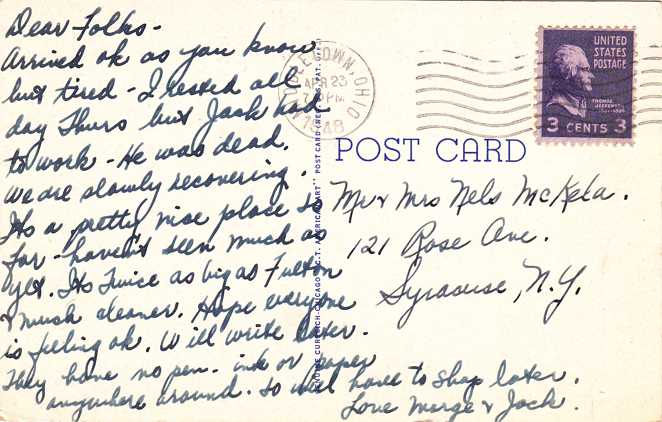 Dear Folks-
Arrived ok as you know
but tired - I rested all
day Thurs but Jack had
to work - He was dead.
We are slowly recovering.
Its a pretty nice place so
far - haven't seen much as
yet. Its twice as big as Fulton
& much cleaner. Hope everyone
is feeling ok. Will write later.
They have no pen - ink or paper
anywhere around. So will have to shop later.
Love Marge & Jack.
MIDDLETOWN, OHIO
APR 23
PM
1948
UNITED
STATES
POSTAGE
THOMAS
JEFFERSON
3 CENTS 3
POST CARD
Mr & Mrs Nels McKela.
121 Rose Ave.
Syracuse, N.Y.
CURTEICH-CHICAGO "C.T. AMERICAN ART" POST CARD (REG. U.S. PAT. OFF.)